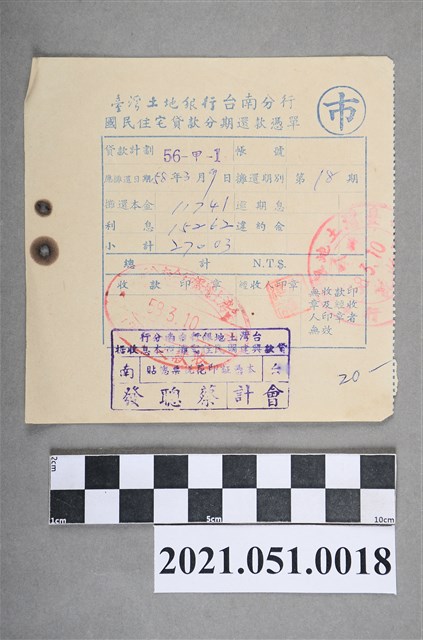 臺灣土地銀行台南分行
國民住宅貸款分期還款憑單
市
貸款計劃 56-甲-I 帳號
應攤還日期 58年3月9日 攤還期別 第18期
攤還本金 11741 逾期息
利息 15262 違約金
小計 27003
總計 N.T$.
收款印章 經收人印章 無收款印
章及經收
人印章者
無效
58.3.10
3.10
行分南台行銀地土灣台
南 台
貼高票花稅印 本
發聰蔡 計會
20-
2cm
1cm 5cm 10cm
2021.051.0018